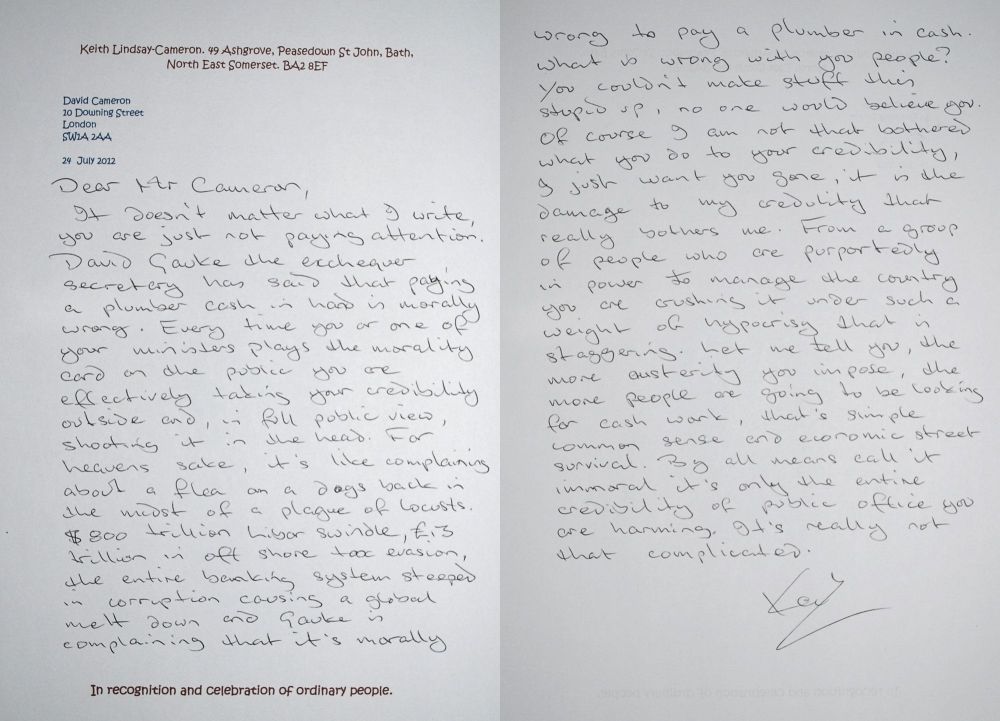 Keith Lindsay-Cameron. 49 Ashgrove, Peasedown St John, Bath,
North East Somerset. BA2 8EF
David Cameron
10 Downing Street
London
SW1A 2AA
24 July 2012
Dear Mr Cameron,
It doesn't matter what I write,
you are just not paying attention.
David Gauke the exchequer
secretary has said that paying
a plumber cash in hand is morally
wrong. Every time you or one of
your ministers plays the morality
card on the public you are
effectively taking your credibility
outside and, in full public view,
shooting it in the head. For
heavens sake, it's like complaining
about a flea on a dogs back in
the midst of a plague of locusts.
$800 trillion Libor swindle, £13
trillion in off shore tax evasion,
the entire banking system steeped
in corruption causing a global
melt down and Gauke is
complaining that it's morally
In recognition and celebration of ordinary people.
wrong to pay a plumber in cash.
What is wrong with you people?
You couldn't make stuff this
stupid up, no one would believe you.
Of course I am not that bothered
what you do to your credibility,
I just want you gone, it is the
damage to my credulity that
really bothers me. From a group
of people who are purportedly
in power to manage the country
you are crushing it under such a
weight of hypocrisy that is
staggering. Let me tell you, the
more austerity you impose, the
more people are going to be looking
for cash work, that's simple
common sense and economic street
survival. By all means call it
immoral it's only the entire
credibility of public office you
are harming. It's really not
that complicated.